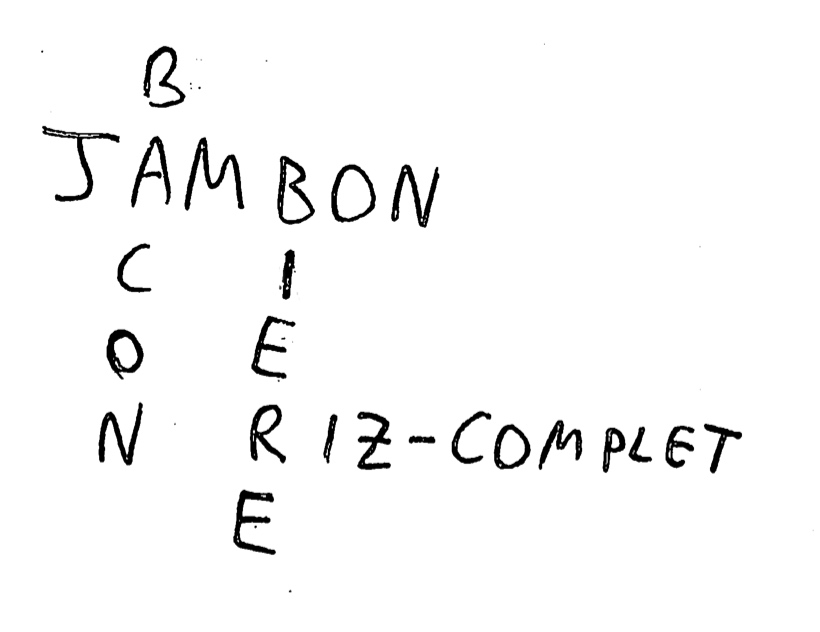 B
JAMBON
C I
O E
N RIZ-COMPLET
E